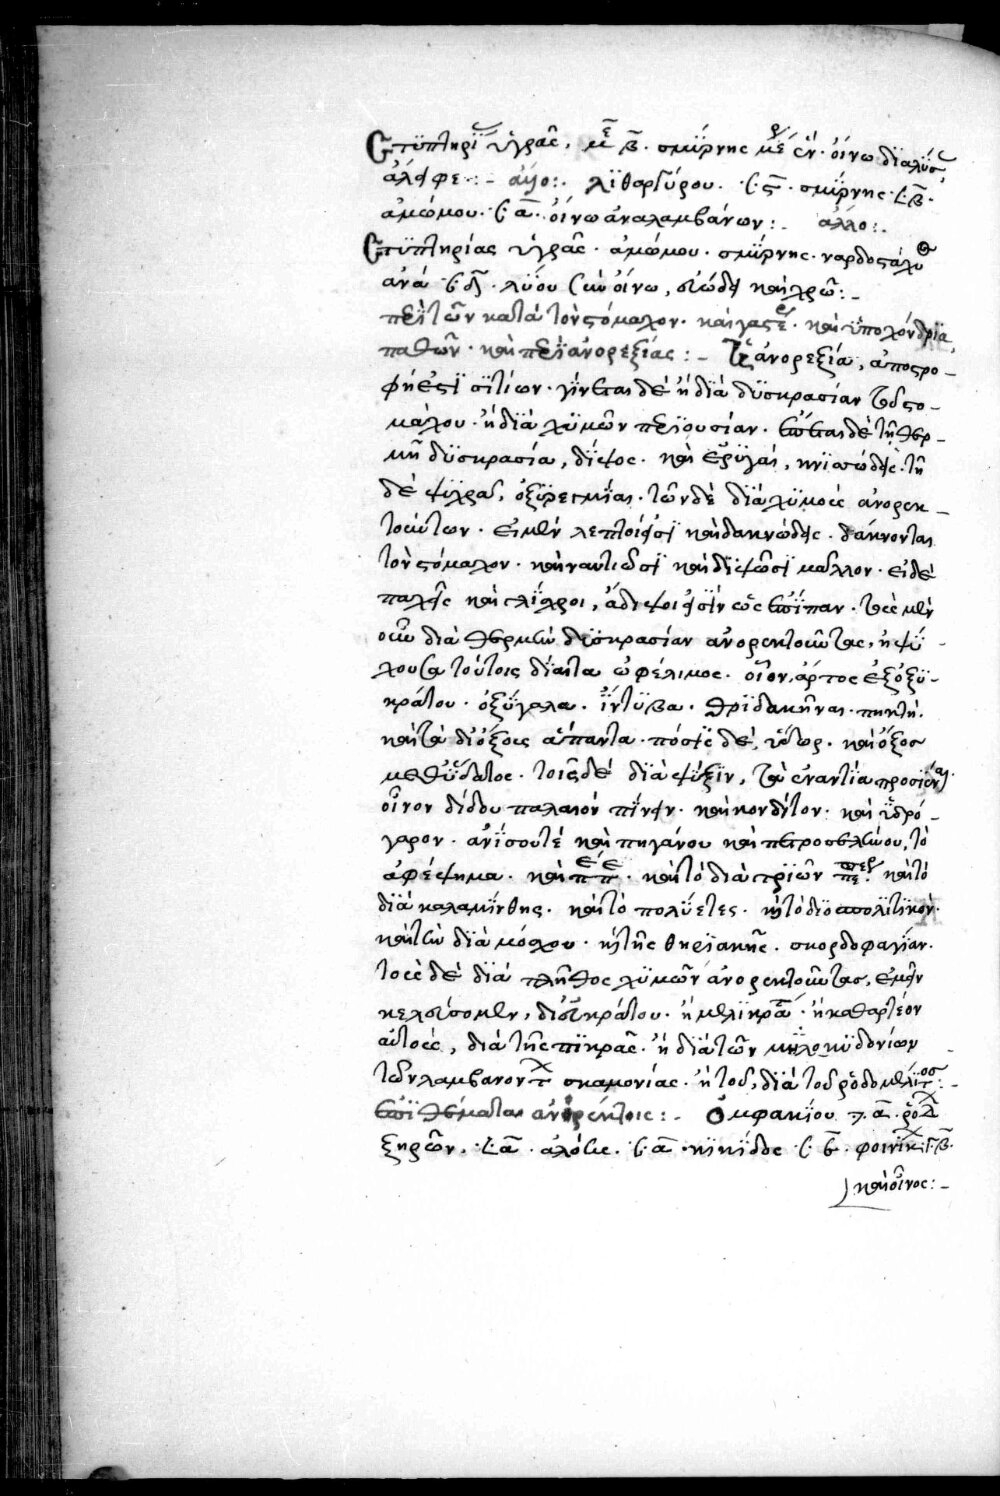 Στϋπτηρΐ ὑγρᾶς, μ̅ε̅ β̅. σμΐρνης μέρ ἐν οἴνω διαλϋσ
ἄλειφε :- ἄλλο:. λϊθαργύρου. ϛ̅. σμΐρνης β̅.
ἀμώμου. α̅. οἴνω ἀναλαμβάνων:. ἄλλο:.
Στϋπτηρίας ὑγρᾶς. ἀμώμου. σμΐρνης. ναρδοστάχυος
ἀνά δ̅. λΰου σὺν οἴνω, εὐώδει καὶ χρῶ:-
περὶ τῶν κατὰ τὸν στόμαχον. καὶ γαστέρ. καὶ ὑποχόνδρια
παθῶν. καὶ περὶ ἀνορεξίας:- ἀνορεξία, ἀποστρο-
φή ἐστϊ σϊτίων. γίνεται δὲ ἢ διὰ δϋσκρασίαν τοῦ στο-
μάχου. ἢ δϊὰ χϋμῶν περϊουσίαν. ἕπεται δὲ τῆ θερ-
μῆ δϋσκρασία, δΐψος. καὶ ἐρϋγαί, κνϊσώδεις. τῆ
δὲ ψϋχρᾶ, ὀξϋρεγμΐαι. τῶν δὲ δϊὰ χϋμοὺς ἀνορεκ-
τούντων. εἰ μὲν λεπτοὶ εἰσϊ καὶ δακνώδεις. δάκνονται
τὸν στόμαχον. καὶ ναυτιῶσϊ καὶ δϊψῶσϊ μᾶλλον. εἰ δὲ
παχεῖς καὶ γλΐσχροι, ἄδιψοι εἰσὶν ὡς ἐπΐπαν. τοὺς μὲν
οὖν διὰ θερμὴν δϋσκρασίαν ἀνορεκτοῦντας, ἡ ψΰ-
χουσα τούτοις δίαιτα ὠφέλιμος. οἷον, ἄρτος ἐξ ὀξϋ-
κράτου. ὀξΰγαλα. ΐντϋβα. θρϊδακῖναι. πηκτή.
καὶ τὰ δι᾽ ὄξους ἅπαντα. πόσϊς δὲ, ὕδωρ. καὶ ὄξος
μεθ᾽ ὕδατος. τοῖς δὲ δϊὰ ψΰξϊν, τὰ ἐναντία προσϊέναι.
οἶνον δίδου παλαιὸν πΐνειν. καὶ κονδίτον. καὶ ὑδρό-
γαρον. ἀνΐσου τὲ καὶ πηγάνου καὶ πετροσελίνου, τὸ
ἀφέψημα. καὶ. καὶ τὸ διὰ τριῶν πεπερ. καὶ τὸ
δϊὰ καλαμΐνθης. καὶ τὸ πολϋετες. καὶ τὸ διοσπολϊτϊκόν.
καὶ τὴν δϊὰ μόσχου. καὶ τῆς θηρϊακῆς. σκορδοφαγΐαν.
τοὺς δὲ δϊὰ πλῆθος χϋμῶν ἀνορεκτοῦντας, ἐμεῖν
κελεύσομεν, δι᾽ ὀξυκράτου. ἢ μελϊκρα. ἢ καθαρτέον
αὐτοὺς, διὰ τῆς πϊκρᾶς. ἢ διὰ τῶν μήλο κϋδονίων
τὴν λαμβανοντ σκαμονίας. ἢ τοῦ, διὰ τοῦ ῥοδομέλιτος:-
ἐπϊθέματα ἀνορέκτοις:- Ὀμφακίου α̅. ῥόδ
ξηρῶν. α̅. ἀλόης. α̅. κϊκΐδος ϛ̅. φοινϊκ β̅.
καὶ οἶνος:-